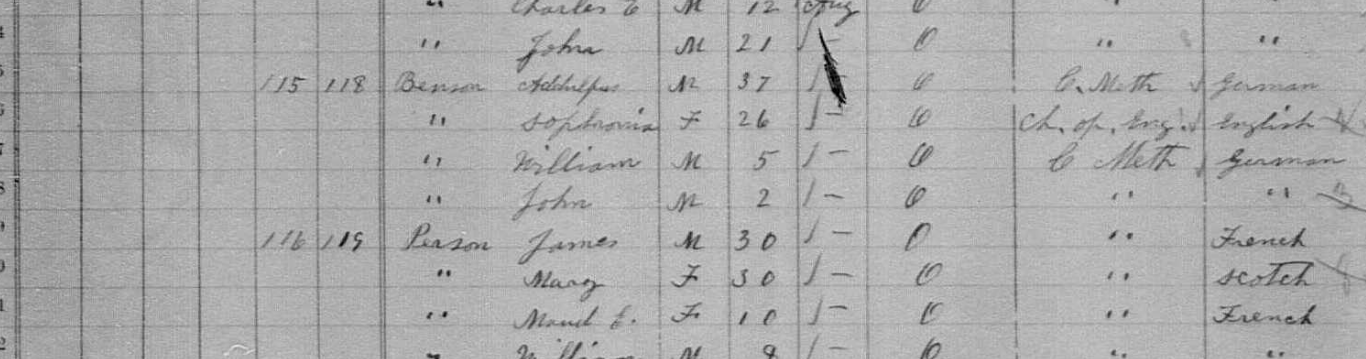 " Charles E M 12 Aug O
" John M 21 / - O " "
115 118 Benson M 37 / - O C. Meth German
" Sophronia F 26 / - O Ch. of. Eng. English
" William M 5 / - O C Meth German
" John M 2 / - O " "
116 119 Person James M 30 / - O " French
" Mary F 30 / - O " Scotch
" Maud E. F 10 / - O " French
" William M 8 / - O " "